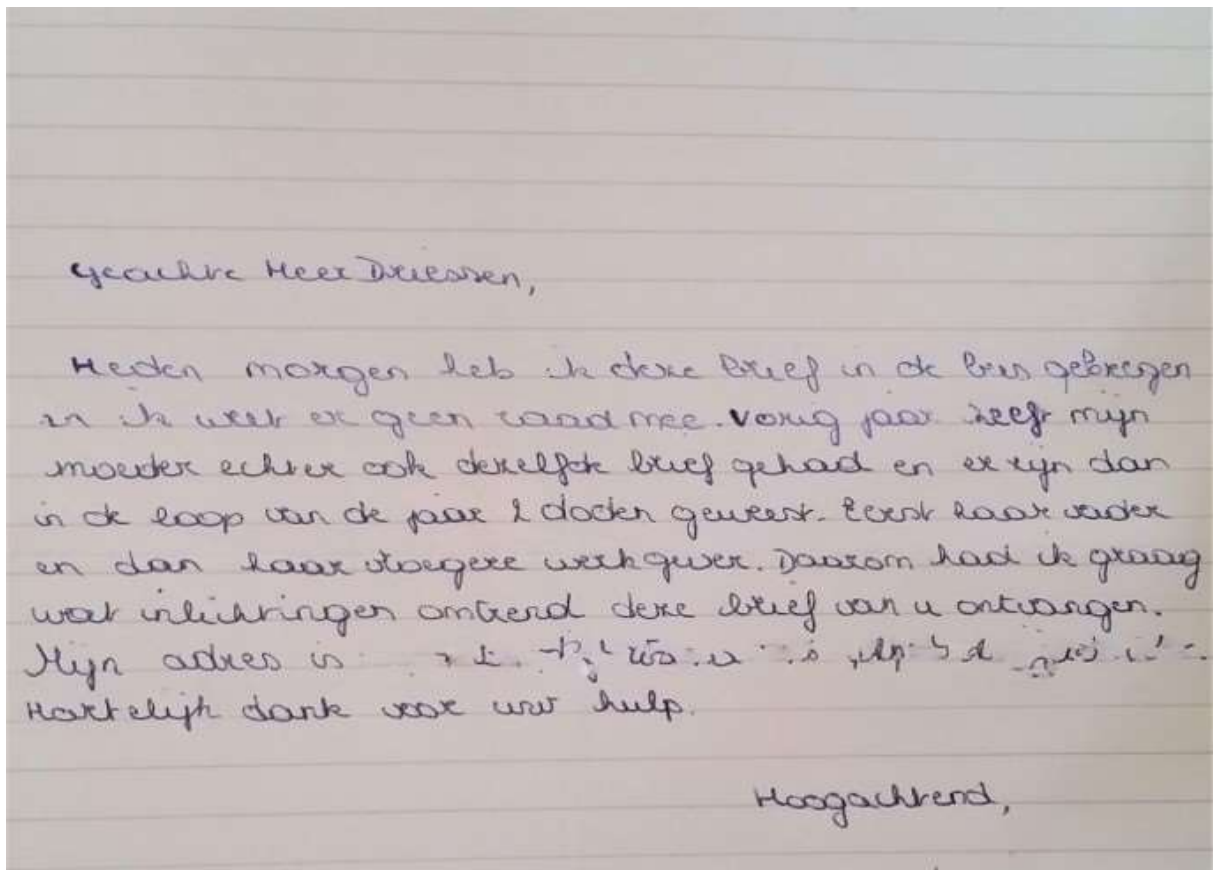 Geachte Heer Driessen,
Heden morgen heb ik deze brief in de bus gekregen
en ik weet er geen raad mee. Vorig jaar heeft mijn
moeder echter ook dezelfde brief gehad en er zijn dan
in de loop van de jaar 2 doden geweest. Eerst haar vader
en dan haar vroegere werkgever. Daarom had ik graag
wat inlichtingen omtrend deze brief van u ontvangen.
Mijn adres is
Hartelijk dank voor uw hulp.
Hoogachtend,